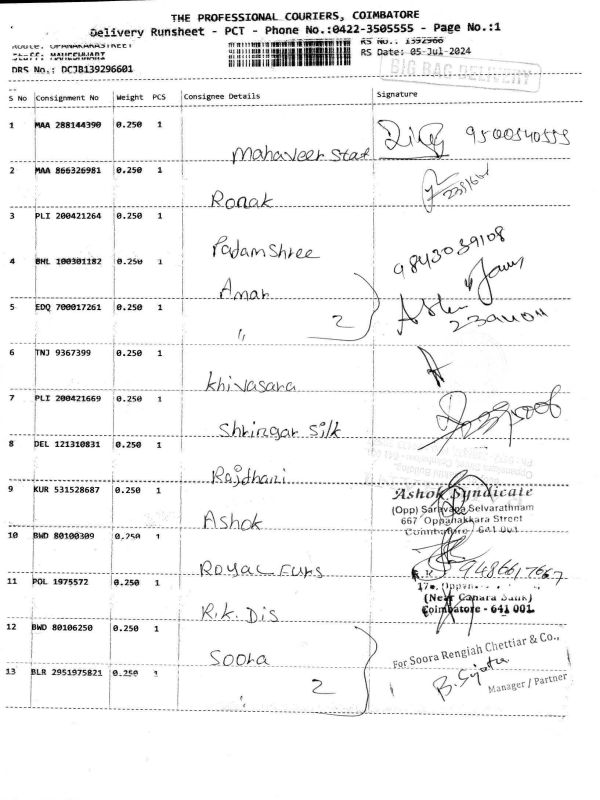 THE PROFESSIONAL COURIERS, COIMBATORE
Delivery Runsheet - PCT - Phone No.:0422-3505555 - Page No.:1
Route: OPANAKARASTREET RS No.: 1392966
Staff: MAHESHWARI RS Date: 05-Jul-2024
DRS No.: DCJB139296601 BIG BAG DELIVERY
S No Consignment No Weight PCS Consignee Details Signature
1 MAA 288144390 0.250 1
Mahaveer Stat 9500540555
2 MAA 866326981 0.250 1
Ronak
3 PLI 200421264 0.250 1
Padamshree 9843039108
4 BHL 100301182 0.250 1
Amar
5 EDQ 700017261 0.250 1
" 2
6 TNJ 9367399 0.250 1
Khivasara
7 PLI 200421669 0.250 1
Shringar Silk
8 DEL 121310831 0.250 1
Rajdhani
9 KUR 531528687 0.250 1
Ashok
Ashok Syndicate
(Opp) Saravana Selvarathnam
667 Oppanakkara Street
Coimbatore - 641 001
10 BWD 80100309 0.250 1
Royal Furs
11 POL 1975572 0.250 1
R.K. Dis
(Near Canara Bank)
Coimbatore - 641 001.
12 BWD 80106250 0.250 1
Soora
For Soora Rengiah Chettiar & Co.,
13 BLR 2951975821 0.250 1
" 2
B. Sujata
Manager / Partner